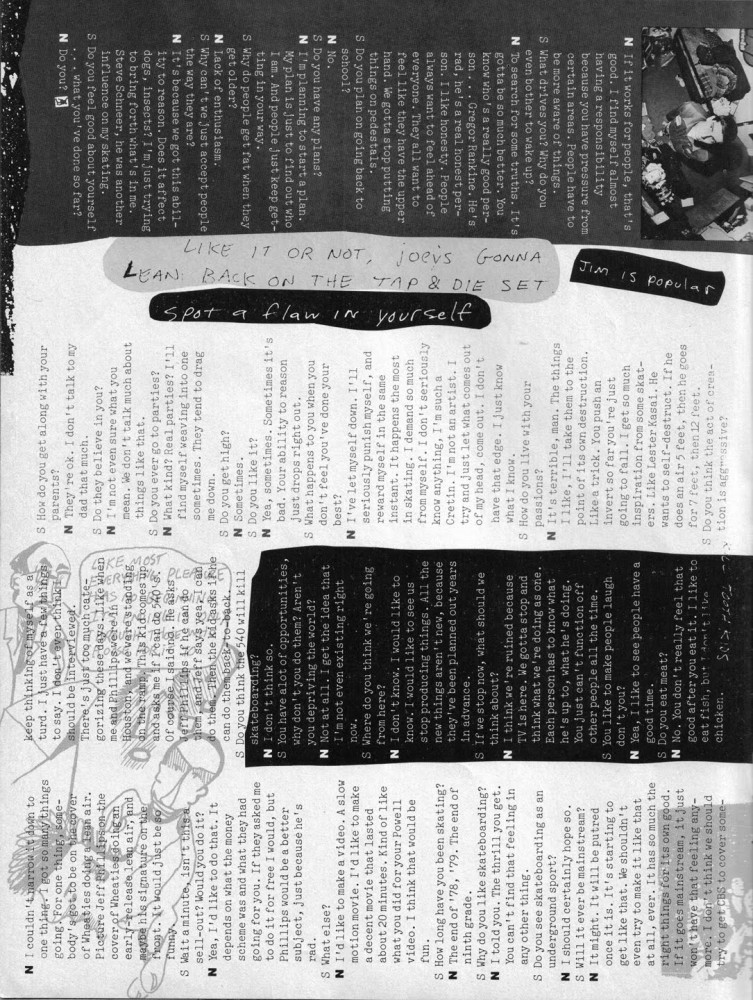 N I couldn't narrow it down to
one thing. I got so many things
going! For one thing, some-
body's got to be on the cover
of Wheaties doing a lean air.
Picture Jeff Phillips on the
cover of Wheaties doing an
early-release lean air, and
maybe his signature on the
front. It would just be so
funny.
S Wait a minute, isn't this a
sell-out? Would you do it?
N Yea, I'd like to do that. It
depends on what the money
scheme was and what they had
going for you. If they asked me
to do it for free I would, but
Phillips would be a better
subject, just because he's
rad.
S What else?
N I'd like to make a video. A slow
motion movie. I'd like to make
a decent movie that lasted
about 20 minutes. Kind of like
what you did for your Powell
video. I think that would be
fun.
S How long have you been skating?
N The end of '78, '79. The end of
ninth grade.
S Why do you like skateboarding?
N I told you. The thrill you get.
You can't find that feeling in
any other thing.
S Do you see skateboarding as an
underground sport?
N I should certainly hope so.
S Will it ever be mainstream?
N It might. It will be putred
once it is. It's starting to
get like that. We shouldn't
even try to make it like that
at all, ever. It has so much the
right things for its own good.
If it goes mainstream, it just
won't have that feeling any-
more. I don't think we should
try to get CBS to cover some-
keep thinking of myself as a
turd. I just have a few things
to say. I don't even think I
should be interviewed.
There's just too much cate-
gorizing these days. Like when
me and Phillips were in
Houston, and we were standing
on the ramp. This kid comes up
and asks me if I can do 540's.
Of course, I said no. He asks
Jeff Phillips if he can do
them, and Jeff says yea, I can
do them. Then the kid asks if he
can do them back-to-back.
S Do you think the 540 will kill
skateboarding?
N I don't think so.
S You have a lot of opportunities,
why don't you do them? Aren't
you depriving the world?
N Not at all. I get the idea that
I'm not even existing right
now.
S Where do you think we're going
from here?
N I don't know. I would like to
know. I would like to see us
stop producing things. All the
new things aren't new, because
they've been planned out years
in advance.
S If we stop now, what should we
think about?
N I think we're ruined because
TV is here. We gotta stop and
think what we're doing as one.
Each person has to know what
he's up to, what he's doing.
You just can't function off
other people all the time.
S You like to make people laugh
don't you?
N Yea, I like to see people have a
good time.
S Do you eat meat?
N No. You don't really feel that
good after you eat it. I like to
eat fish, but I don't like
chicken.
S How do you get along with your
parents?
N They're ok. I don't talk to my
dad that much.
S Do they believe in you?
N I'm not even sure what you
mean. We don't talk much about
things like that.
S Do you ever go to parties?
N What kind? Real parties? I'll
find myself weaving into one
sometimes. They tend to drag
me down.
S Do you get high?
N Sometimes.
S Do you like it?
N Yea, sometimes. Sometimes it's
bad. Your ability to reason
just drops right out.
S What happens to you when you
don't feel you've done your
best?
N I've let myself down. I'll
seriously punish myself, and
reward myself in the same
instant. It happens the most
in skating. I demand so much
from myself. I don't seriously
know anything, I'm such a
Cretin. I'm not an artist. I
try and just let what comes out
of my head, come out. I don't
have that edge. I just know
what I know.
S How do you live with your
passions?
N It's terrible, man. The things
I like, I'll take them to the
point of its own destruction.
Like a trick. You push an
invert so far you're just
going to fall. I get so much
inspiration from some skat-
ers. Like Lester Kasai. He
wants to self-destruct. If he
does an air 5 feet, then he goes
for 7 feet, then 12 feet.
S Do you think the act of crea-
tion is aggressive?
LIKE IT OR NOT, JOE'S GONNA
LEAN BACK ON THE TAP & DIE SET
SPOT A FLAW IN YOURSELF
JIM IS POPULAR
N If it works for people, that's
good. I find myself almost
having a responsibility
because you have pressure from
certain areas. People have to
be more aware of things.
S What drives you? Why do you
even bother to wake up?
N To search for some truths. It's
gotta be so much better. You
know who's a really good per-
son . . . Gregor Rankine. He's
rad, he's a real honest per-
son. I like honesty. People
always want to feel ahead of
everyone. They all want to
feel like they have the upper
hand. We gotta stop putting
things on pedestals.
S Do you plan on going back to
school?
N No.
S Do you have any plans?
N I'm planning to start a plan.
My plan is just to find out who
I am. And people just keep get-
ting in your way.
S Why do people get fat when they
get older?
N Lack of enthusiasm.
S Why can't we just accept people
the way they are?
N It's because we got this abil-
ity to reason. Does it affect
dogs, insects? I'm just trying
to bring forth what's in me.
Steve Schneer, he was another
influence on my skating.
S Do you feel good about yourself
. . . what you've done so far?
N Do you?